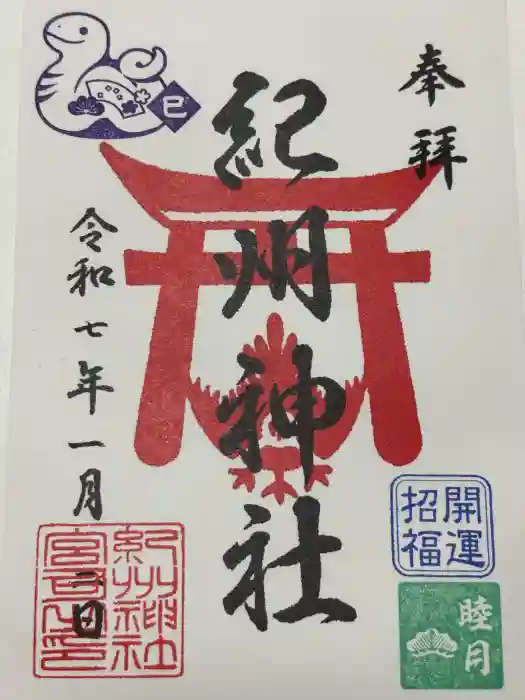 奉拝
紀州神社
令和七年一月
二日
巳
開運
招福
睦月
紀州神社
宮司之印